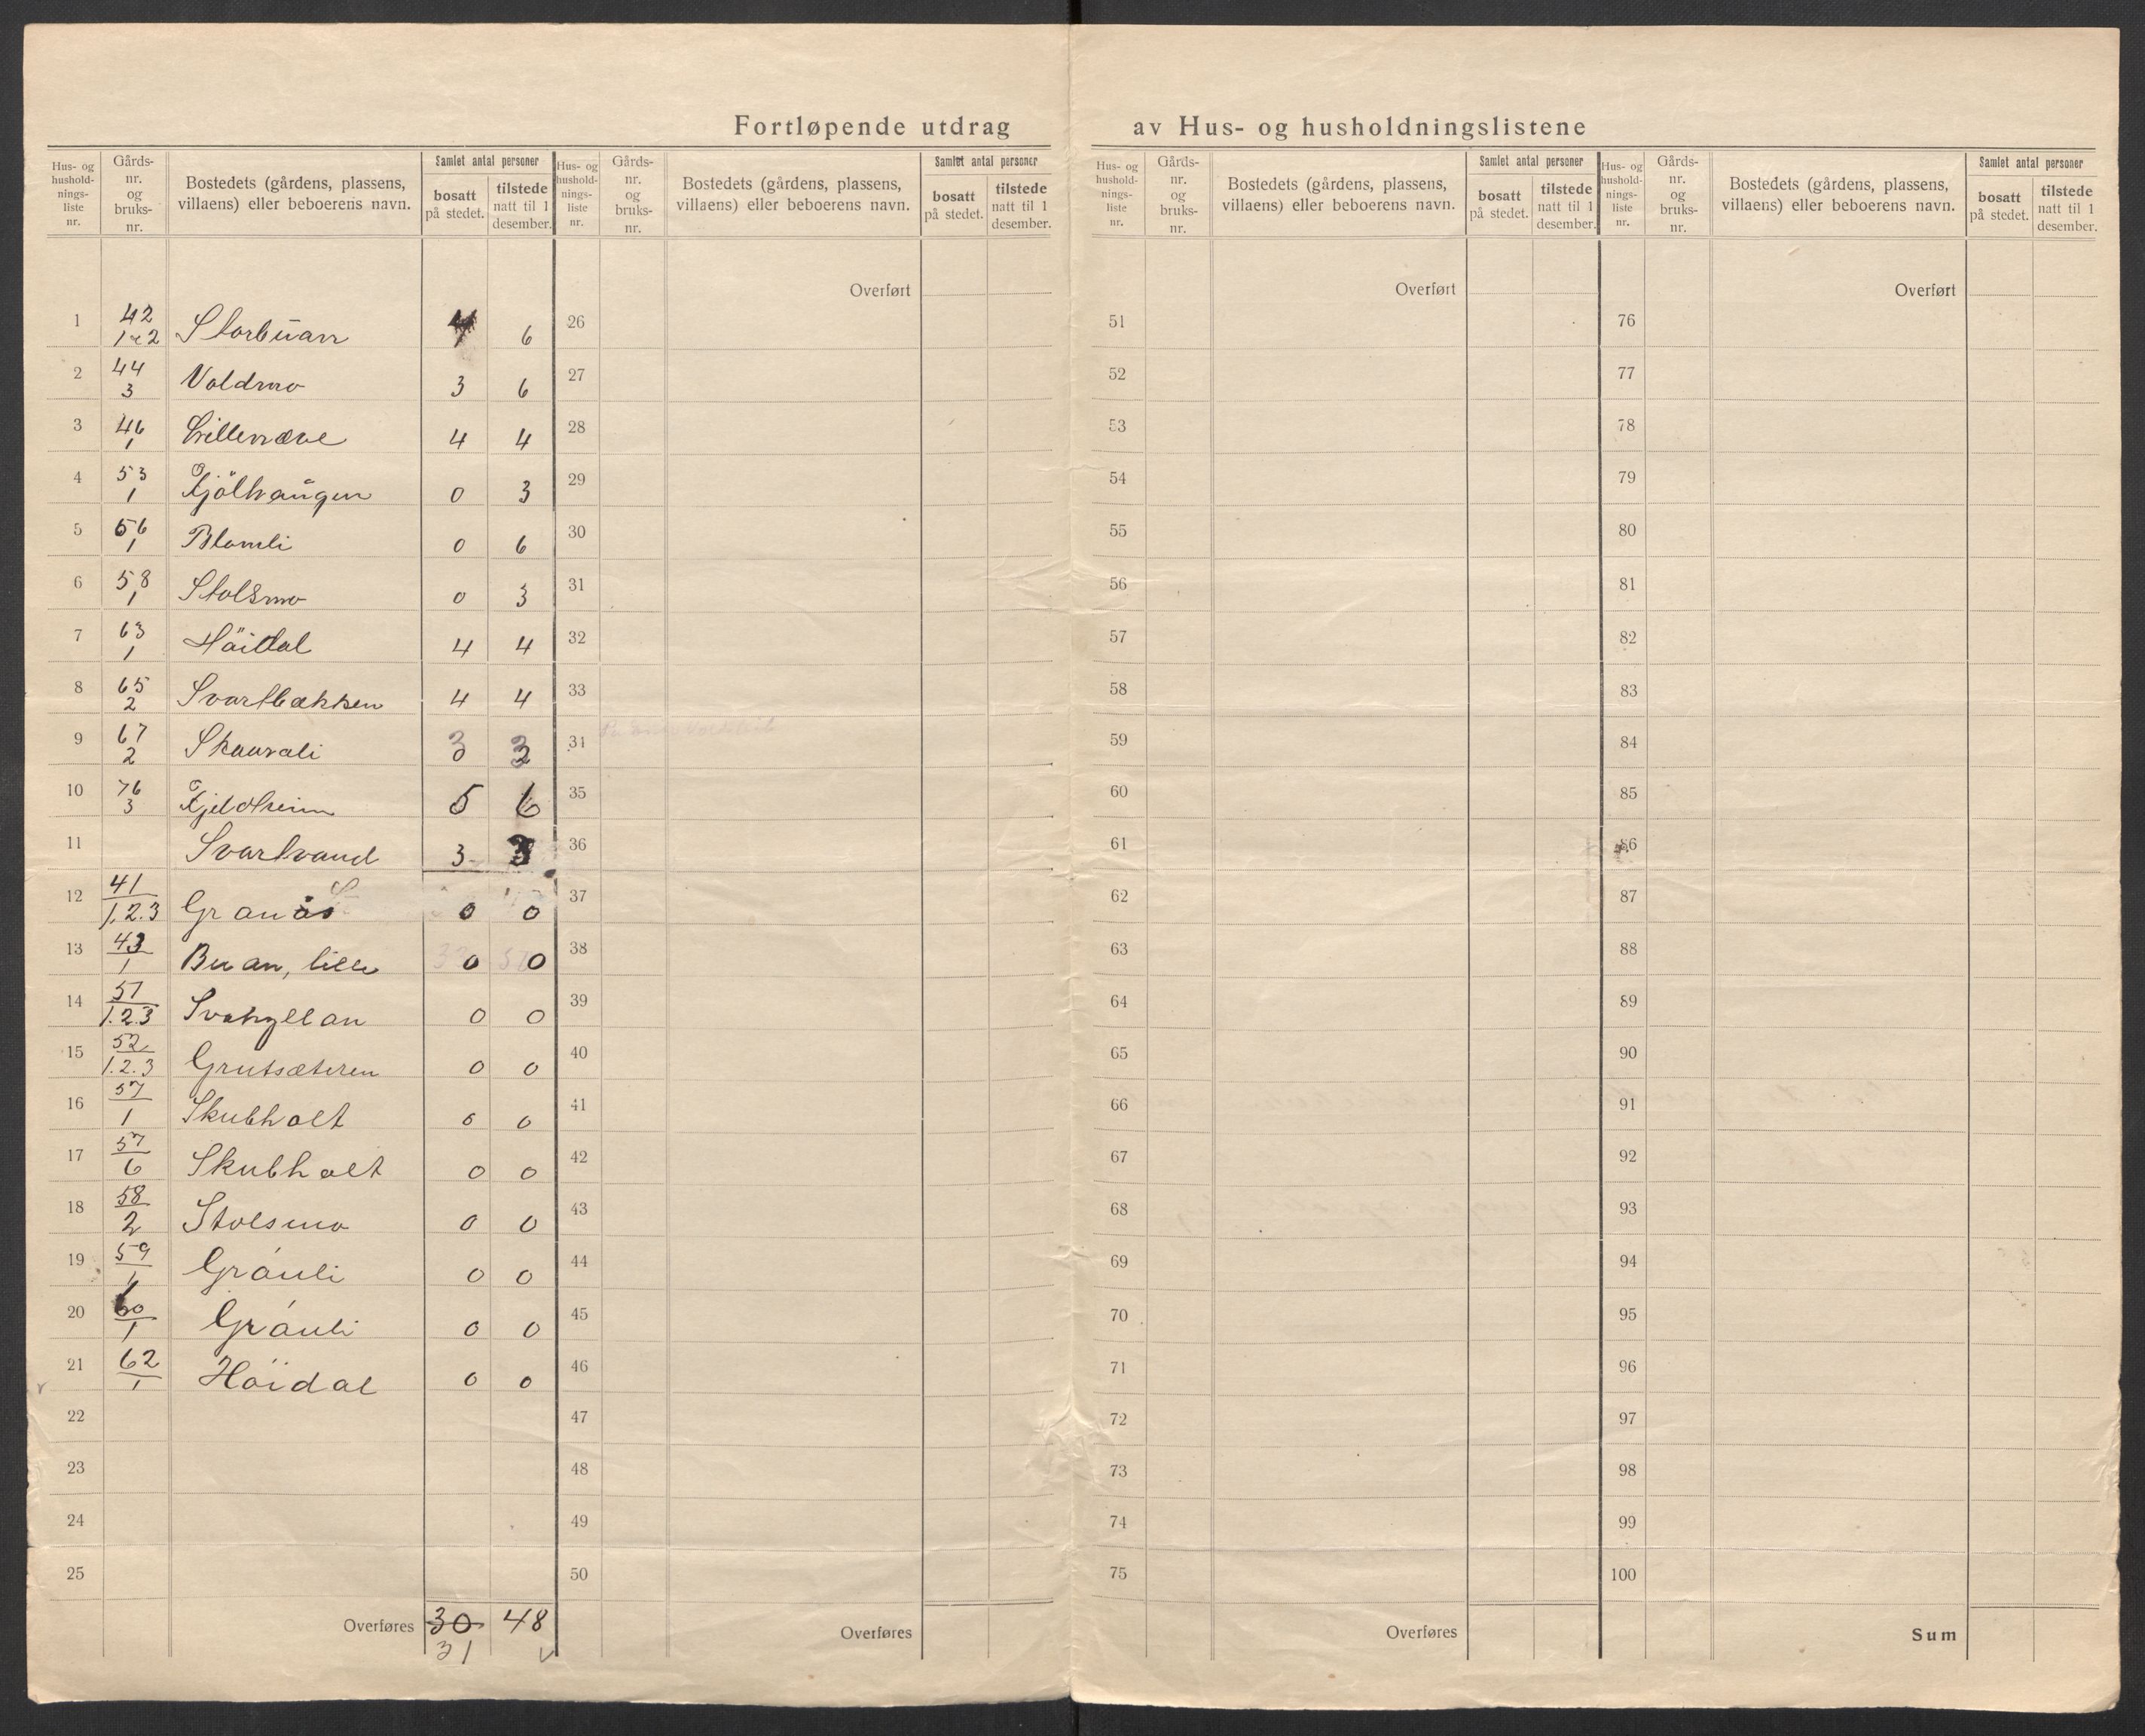 Fortløpende utdrag av Hus- og husholdningslistene
Hus- og husholdnings-liste nr. Gårds-nr. og bruks-nr. Bostedets (gårdens, plassens, villaens) eller beboerens navn. Samlet antal personer bosatt på stedet. tilstede natt til 1 desember.
Hus- og husholdnings-liste nr. Gårds-nr. og bruks-nr. Bostedets (gårdens, plassens, villaens) eller beboerens navn. Samlet antal personer bosatt på stedet. tilstede natt til 1 desember.
Hus- og husholdnings-liste nr. Gårds-nr. og bruks-nr. Bostedets (gårdens, plassens, villaens) eller beboerens navn. Samlet antal personer bosatt på stedet. tilstede natt til 1 desember.
Hus- og husholdnings-liste nr. Gårds-nr. og bruks-nr. Bostedets (gårdens, plassens, villaens) eller beboerens navn. Samlet antal personer bosatt på stedet. tilstede natt til 1 desember.
Overført Overført Overført
1 42 1 2 Storbuan 6 26 51 76
2 44 3 Voldmo 3 6 27 52 77
3 46 1 Lillenæve 4 4 28 53 78
4 53 1 Kjölhaugen 0 3 29 54 79
5 56 1 Blomli 0 6 30 55 80
6 58 1 Stolsmo 0 3 31 56 81
7 63 1 Höidal 4 4 32 57 82
8 65 2 Svartbækken 4 4 33 58 83
9 67 2 Skaurali 3 3 34 59 84
10 76 3 Kjeldheim 5 6 35 60 85
11 Svartvand 3 3 36 61 86
12 41 1.2.3 Granås 0 0 37 62 87
13 43 1 Buan, lille 0 0 38 63 88
14 51 1.2.3 0 0 39 64 89
15 52 1.2.3 Grutsæteren 0 0 40 65 90
16 57 1 Skubholt 0 0 41 66 91
17 57 6 Skubholt 0 0 42 67 92
18 58 2 Stolsmo 0 0 43 68 93
19 59 1 Gråuli 0 0 44 69 94
20 60 1 Gråuli 0 0 45 70 95
21 62 1 Höidal 0 0 46 71 96
22 47 72 97
23 48 73 98
24 49 74 99
25 50 75 100
Overføres 30 48 Overføres Overføres Sum
31